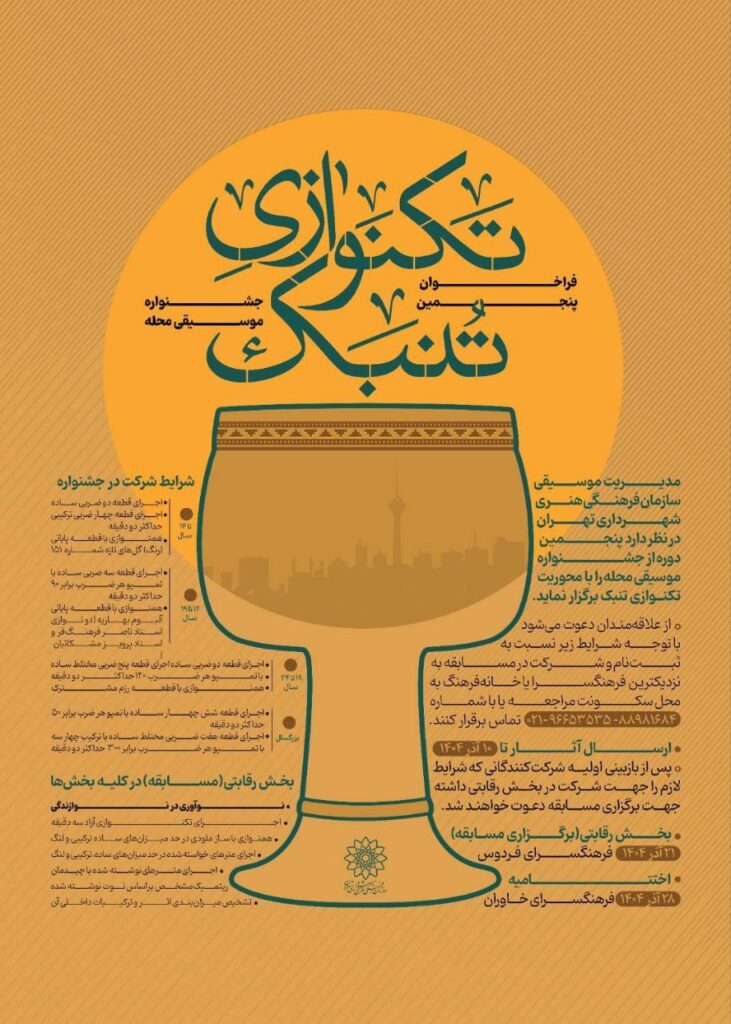 تکنوازیِ
تُنبک
فراخوان
پنجمین
جشنواره
موسیقی محله
مدیریت موسیقی
سازمان فرهنگی هنری
شهرداری تهران
در نظر دارد پنجمین
دوره از جشنواره
موسیقی محله را با محوریت
تکنوازی تنبک برگزار نماید.
از علاقه‌مندان دعوت می‌شود
با توجه شرایط زیر نسبت به
ثبت‌نام و شرکت در مسابقه به
نزدیکترین فرهنگسرا یا خانه‌فرهنگ به
محل سکونت مراجعه یا با شماره
۸۸۹۸۱۶۸۴ -۰۲۱-۹۶۶۵۳۵۳۵ تماس برقرار کنند.
• ارسال آثار تا ۱۰ آذر ۱۴۰۴
پس از بازبینی اولیه شرکت‌کنندگانی که شرایط
لازم را جهت شرکت در بخش رقابتی داشته
جهت برگزاری مسابقه دعوت خواهند شد.
• بخش رقابتی(برگزاری مسابقه)
۲۱ آذر ۱۴۰۴ فرهنگسرای فردوس
• اختتامیه
۲۸ آذر ۱۴۰۴ فرهنگسرای خاوران
شرایط شرکت در جشنواره
تا ۱۴
سال
• اجرای قطعه دو ضربی ساده
• اجرای قطعه چهار ضربی ترکیبی
حداکثر دو دقیقه
• همنوازی با قطعه پایانی
(رنگ) گل‌های تازه شماره ۱۵۱
۱۴ تا ۱۹
سال
• اجرای قطعه سه ضربی ساده با
تمپو هر ضرب برابر ۹۰
حداکثر دو دقیقه
• همنوازی با قطعه پایانی
آلبوم بهاریه (دو نوازی
استاد ناصر فرهنگ‌فر و
استاد پرویز مشکاتیان
۱۹ تا ۲۴
سال
• اجرای قطعه دو ضربی ساده اجرای قطعه پنج ضربی مختلط ساده
• با تمپو هر ضرب ۱۲۰ حداکثر دو دقیقه
• همنوازی با قطعه رزم مشترک
بزرگسال
• اجرای قطعه شش چهار ساده با تمپو هر ضرب برابر ۵۰
حداکثر دو دقیقه
• اجرای قطعه هفت ضربی مختلط ساده با ترکیب چهار سه
با تمپو هر ضرب برابر ۳۰۰ حداکثر دو دقیقه
بخش رقابتی(مسابقه)در کلیه بخش‌ها
• نوآوری در نوازندگی
• اجرای تکنوازی آزاد سه دقیقه
• همنوازی با ساز ملودی در حد میزان‌های ساده ترکیبی و لنگ
• اجرای مترهای خواسته شده در حد میزان‌های ساده، ترکیبی و لنگ
• اجرای مترهای نوشته شده با چیدمان
ریتمیک مشخص بر اساس نوت نوشته شده
• تشخیص میزان بندی اثر و ترکیبات داخلی آن